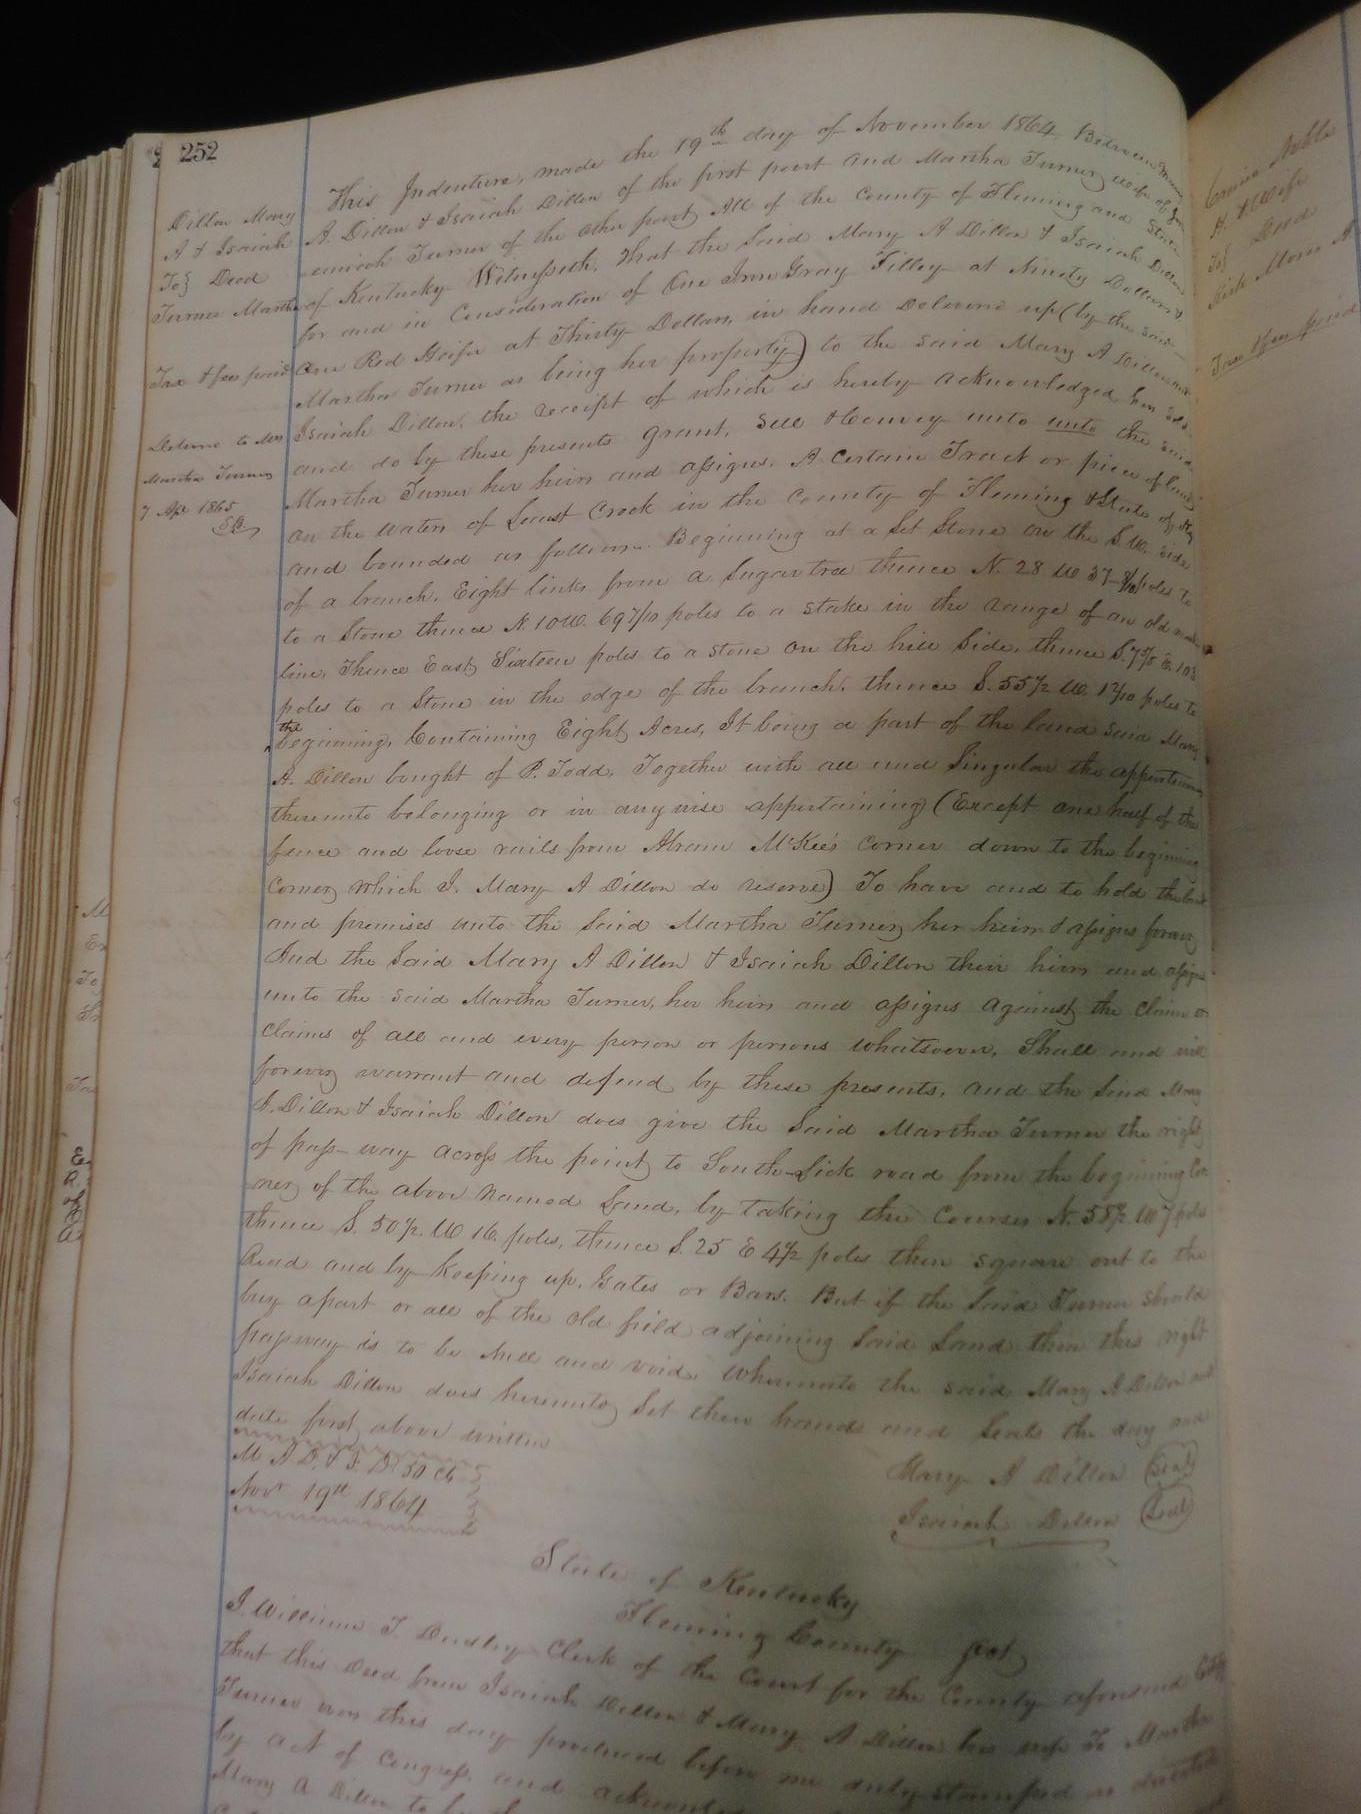 252
Dillon Mary
A & Isaiah
To} Deed
Turner Martha
Tax & fee paid
Delivered to Mrs
Martha Turner
7 Apl 1865
This Indenture, made the 19th day of November 1864, Between Mary
A. Dillon & Isaiah Dillon of the first part and Martha Turner wife of Jer
emiah Turner of the other part, All of the County of Fleming and State
of Kentucky Witnesseth, That the Said Mary A Dillon & Isaiah Dillon
for and in Consideration of One Iron Gray Filley at Ninety Dollars &
One Red Heifer at Thirty Dollars, in hand Delivered up (by the said
Martha Turner as being her property) to the said Mary A Dillon and
Isaiah Dillon, the receipt of which is hereby acknowledged, has sold
and do by these presents grant, Sell & Convey unto unto the said
Martha Turner her heirs and assigns, A Certain Tract or piece of land
on the waters of Locust Creek in the County of Fleming & State of Ky
and bounded as follows. Beginning at a Set Stone on the S.W. side
of a branch, Eight links from a Sugar tree thence N. 28 W 37 8/10 poles to
to a Stone thence N. 10 W. 69 7/10 poles to a stake in the range of an old
line, Thence East, Sixteen poles to a stone on the hill Side, thence S. 7 5/8 E. 103
poles to a Stone in the edge of the branch, thence S. 55 1/2 W. poles to
the beginning, Containing Eight Acres, It being a part of the land said Mary
A. Dillon bought of P. Todd, Together with all and Singular the appurtenances
thereunto belonging or in anywise appertaining (Except one half of the
fence and loose rails from Abram McKee's corner down to the beginning
Corner, which I, Mary A Dillon do reserve) To have and to hold the land
and premises unto the Said Martha Turner, her heirs & assigns forever
And the Said Mary A Dillon & Isaiah Dillon their heirs and assigns
unto the said Martha Turner, her heirs and assigns against, the claim or
claims of all and every person or persons whatsoever, Shall and will
forever warrant and defend by these presents, and the Said Mary
A. Dillon & Isaiah Dillon does give the Said Martha Turner the right
of pass-way across the point to South-Lick road from the beginning Cor
ner of the above named Land, by taking the Courses N. 58 1/2 W 7 poles
thence S. 50 1/2 W 16 poles, thence S. 25 E 4 1/2 poles then square out to the
Road and by Keeping up, Gates or Bars. But if the Said Turner should
buy apart or all of the old field adjoining Said Land then this right
passway is to be Null and void. Whereunto the said Mary A Dillon and
Isaiah Dillon does hereunto, Set their hands and Seals the day and
date first, above written
M A D. & I. D 50 cts
Novr 19th 1864
Mary A Dillon (Seal)
Isaiah Dillon (Seal)
State of Kentucky
Fleming County Sct
I William T. Dudley Clerk of the Court for the County aforesaid Certify
that this Deed from Isaiah Dillon & Mary A. Dillon his wife To Martha
Turner was this day produced before me duly stamped as directed
by act of Congress, and
Mary A Dillon to
Noble
& Wife
To} Deed